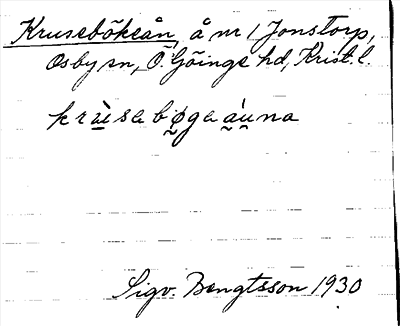 Krusebökeån, å nr 1 Jonstorp,
Osby sn, Ö. Göinge hd, Krist. l.
krùsabø̰ga a̰ṵ̀na
Sigv. Bengtsson 1930